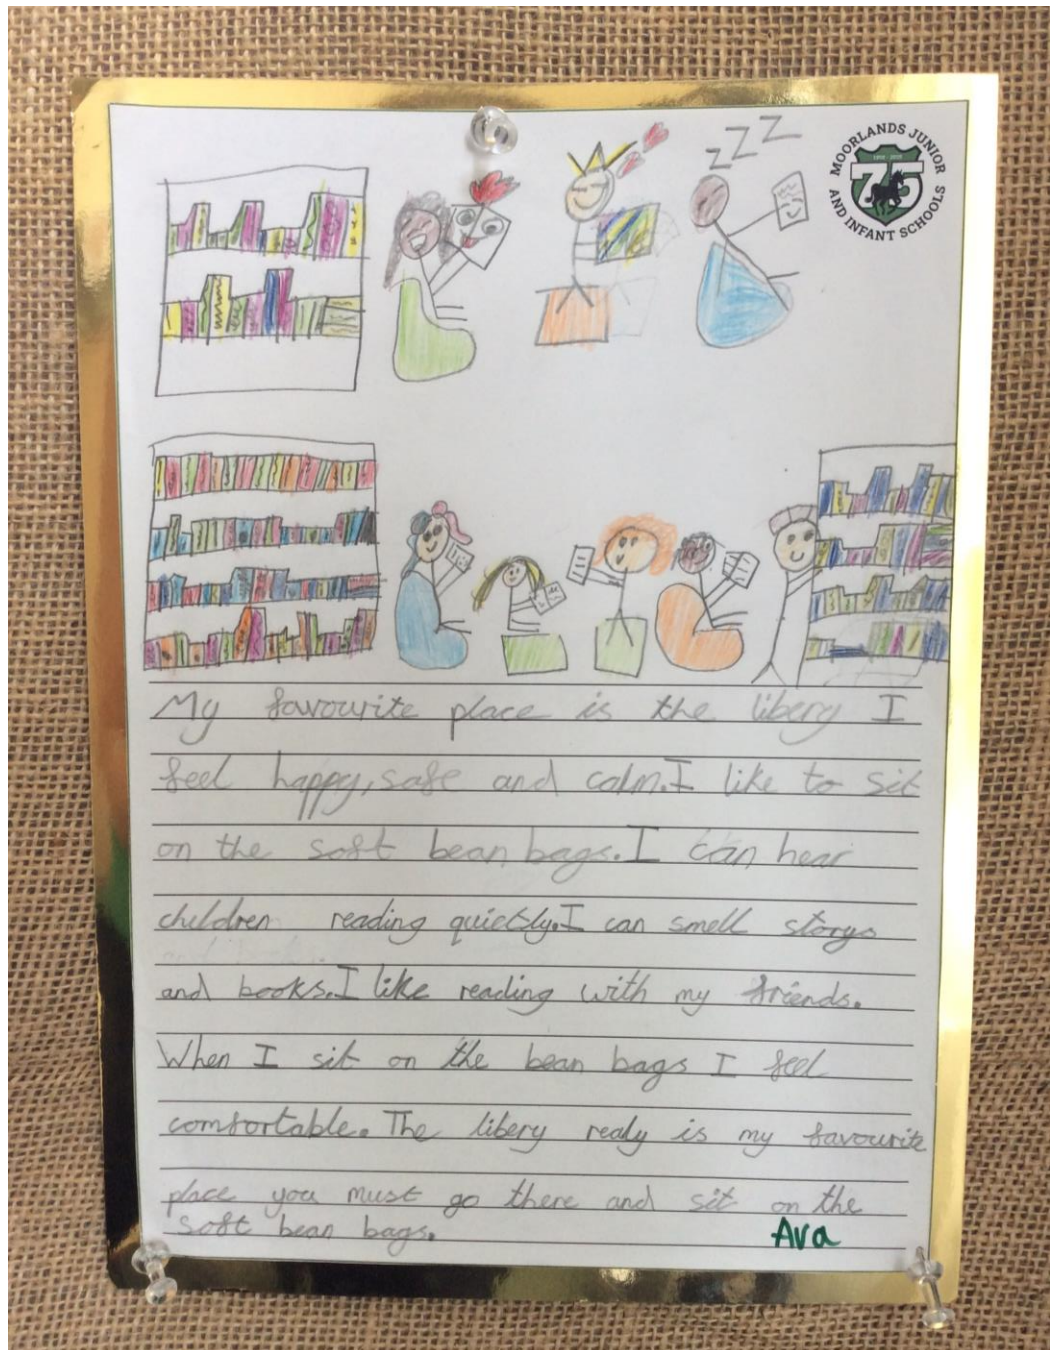 ZZZ
MOORLANDS JUNIOR
75
AND INFANT SCHOOLS
My favourite place is the libery I
feel happy, safe and calm. I like to sit
on the soft bean bags. I can hear
children reading quietly. I can smell storys
and books. I like reading with my friends.
When I sit on the bean bags I feel
comfortable. The libery realy is my favourite
place you must go there and sit on the
soft bean bags.
Ava